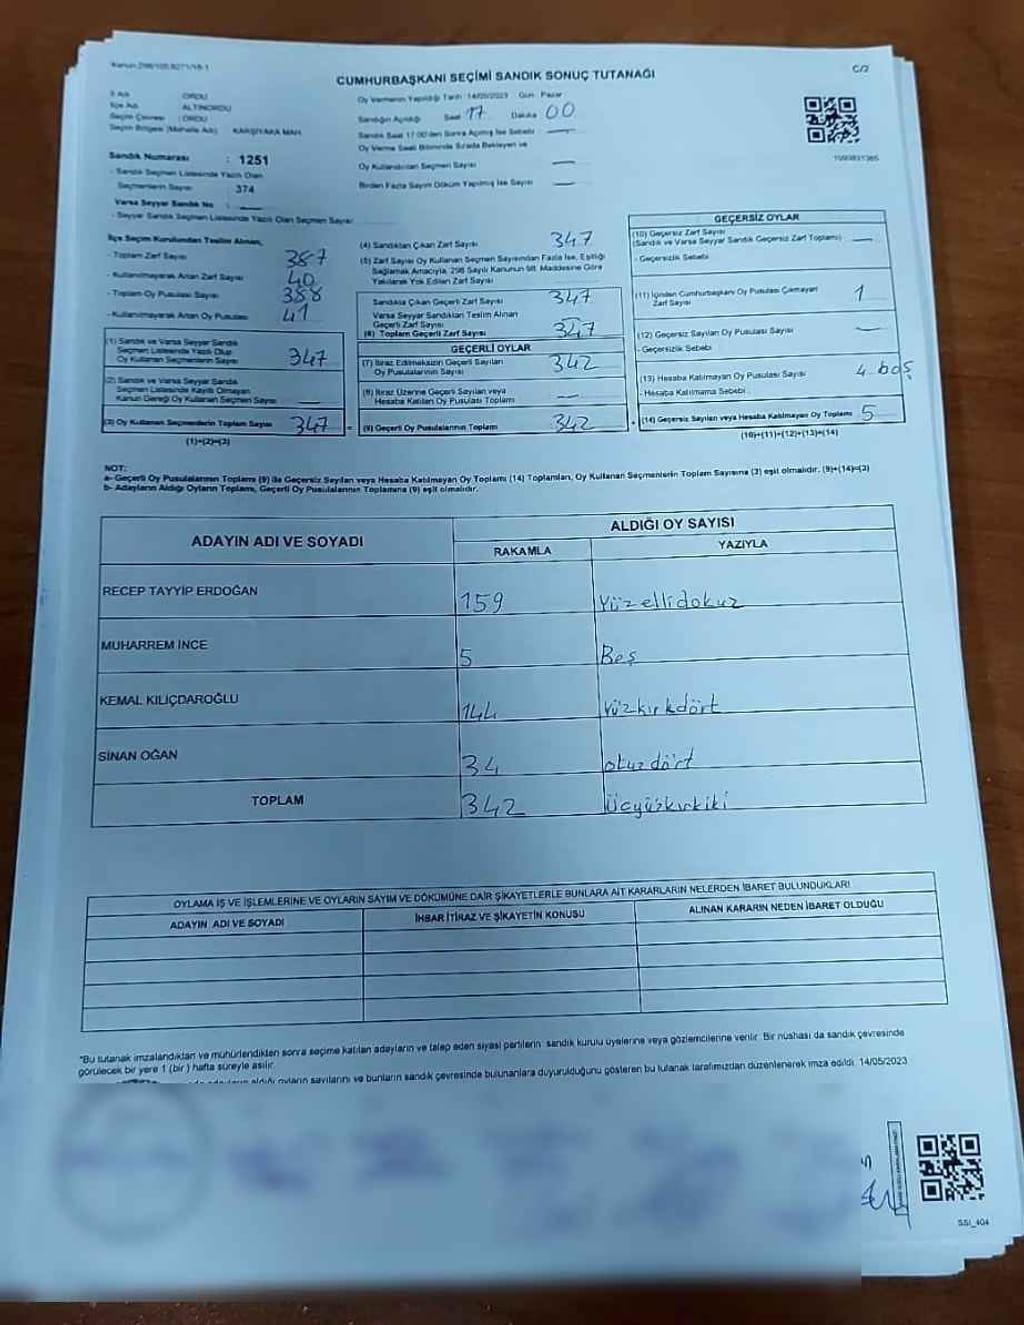 Kanun:298/105,6271/18-1
CUMHURBAŞKANI SEÇİMİ SANDIK SONUÇ TUTANAĞI
C/2
İl Adı : ORDU
İlçe Adı : ALTINORDU
Seçim Çevresi : ORDU
Seçim Bölgesi (Mahalle Adı) : KARŞIYAKA MAH.
Sandık Numarası : 1251
- Sandık Seçmen Listesinde Yazılı Olan
Seçmenlerin Sayısı : 374
Varsa Seyyar Sandık No : —
- Seyyar Sandık Seçmen Listesinde Yazılı Olan Seçmen Sayısı
Oy Vermenin Yapıldığı Tarih : 14/05/2023 Gün : Pazar
Sandığın Açıldığı Saat 17 Dakika 00
Sandık Saat 17:00'den Sonra Açılmış İse Sebebi —
Oy Verme Saati Bitiminde Sırada Bekleyen ve
Oy Kullandırılan Seçmen Sayısı —
Birden Fazla Sayım Döküm Yapılmış İse Sayısı —
İlçe Seçim Kurulundan Teslim Alınan;
- Toplam Zarf Sayısı 387
- Kullanılmayarak Artan Zarf Sayısı 40
- Toplam Oy Pusulası Sayısı 388
- Kullanılmayarak Artan Oy Pusulası 41
(1) Sandık ve Varsa Seyyar Sandık
Seçmen Listesinde Yazılı Olup
Oy Kullanan Seçmenlerin Sayısı 347
(2) Sandık ve Varsa Seyyar Sandık
Seçmen Listesinde Kayıtlı Olmayan
Kanun Gereği Oy Kullanan Seçmen Sayısı —
(3) Oy Kullanan Seçmenlerin Toplam Sayısı 347
(1)+(2)=(3)
(4) Sandıktan Çıkan Zarf Sayısı 347
(5) Zarf Sayısı Oy Kullanan Seçmen Sayısından Fazla İse, Eşitliği
Sağlamak Amacıyla, 298 Sayılı Kanunun 98. Maddesine Göre
Yakılarak Yok Edilen Zarf Sayısı
Sandıkta Çıkan Geçerli Zarf Sayısı 347
Varsa Seyyar Sandıktan Teslim Alınan
Geçerli Zarf Sayısı —
(6) Toplam Geçerli Zarf Sayısı 347
GEÇERLİ OYLAR
(7) İtiraz Edilmeksizin Geçerli Sayılan
Oy Pusulalarının Sayısı 342
(8) İtiraz Üzerine Geçerli Sayılan veya
Hesaba Katılan Oy Pusulası Toplamı —
= (9) Geçerli Oy Pusulalarının Toplamı 342
GEÇERSİZ OYLAR
(10) Geçersiz Zarf Sayısı
(Sandık ve Varsa Seyyar Sandık Geçersiz Zarf Toplamı) —
- Geçersizlik Sebebi
(11) İçinden Cumhurbaşkanı Oy Pusulası Çıkmayan
Zarf Sayısı 1
(12) Geçersiz Sayılan Oy Pusulası Sayısı —
- Geçersizlik Sebebi
(13) Hesaba Katılmayan Oy Pusulası Sayısı 4 boş
- Hesaba Katılmama Sebebi
+ (14) Geçersiz Sayılan veya Hesaba Katılmayan Oy Toplamı 5
(10)+(11)+(12)+(13)=(14)
NOT:
a- Geçerli Oy Pusulalarının Toplamı (9) ile Geçersiz Sayılan veya Hesaba Katılmayan Oy Toplamı (14) Toplamları, Oy Kullanan Seçmenlerin Toplam Sayısına (3) eşit olmalıdır. (9)+(14)=(3)
b- Adayların Aldığı Oyların Toplamı, Geçerli Oy Pusulalarının Toplamına (9) eşit olmalıdır.
ADAYIN ADI VE SOYADI
ALDIĞI OY SAYISI
RAKAMLA YAZIYLA
RECEP TAYYİP ERDOĞAN 159 Yüzellidokuz
MUHARREM İNCE 5 Beş
KEMAL KILIÇDAROĞLU 144 Yüzkırkdört
SİNAN OĞAN 34 otuzdört
TOPLAM 342 Üçyüzkırkiki
OYLAMA İŞ VE İŞLEMLERİNE VE OYLARIN SAYIM VE DÖKÜMÜNE DAİR ŞİKAYETLERLE BUNLARA AİT KARARLARIN NELERDEN İBARET BULUNDUKLARI
ADAYIN ADI VE SOYADI İHBAR İTİRAZ VE ŞİKAYETİN KONUSU ALINAN KARARIN NEDEN İBARET OLDUĞU
*Bu tutanak imzalandıktan ve mühürlendikten sonra seçime katılan adayların ve talep eden siyasi partilerin sandık kurulu üyelerine veya gözlemcilerine verilir. Bir nüshası da sandık çevresinde
görülecek bir yere 1 (bir) hafta süreyle asılır.
aldığı oyların sayılarını ve bunların sandık çevresinde bulunanlara duyurulduğunu gösteren bu tutanak tarafımızdan düzenlenerek imza edildi. 14/05/2023
SSI_404